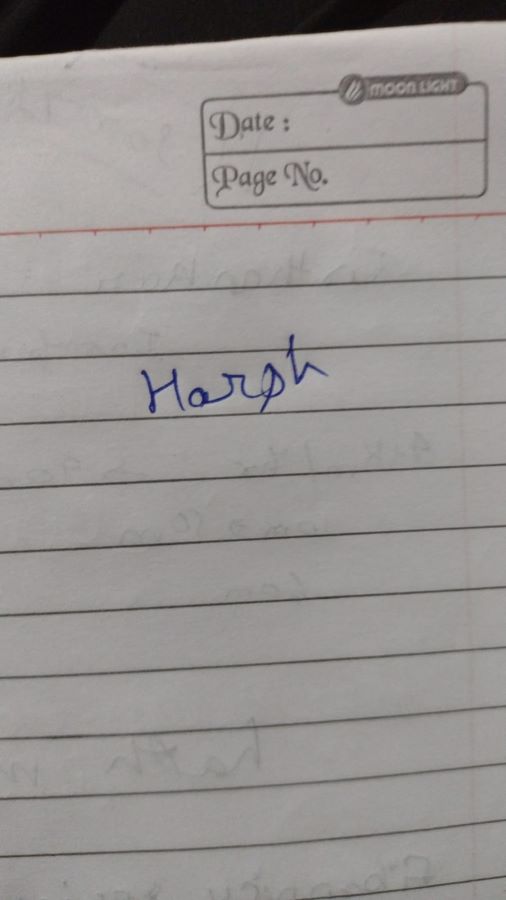 MOON LIGHT
Date :
Page No.
Harsh